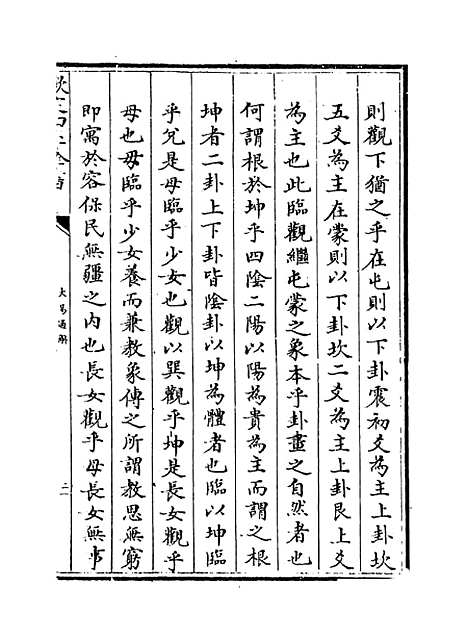 則觀下猶之乎在屯則以下卦震初爻為主上卦坎
五爻為主在蒙則以下卦坎二爻為主上卦艮上爻
為主也此臨觀繼屯蒙之象本乎卦畫之自然者也
何謂根於坤乎四陰二陽以陽為貴為主而謂之根
坤者二卦上下卦皆陰卦以坤為體者也臨以坤臨
乎兌是母臨乎少女也觀以巽觀乎坤是長女觀乎
母也母臨乎少女養而兼教象傳之所謂教思無窮
即寓於容保民無疆之內也長女觀乎母長女無事
大易通解
二